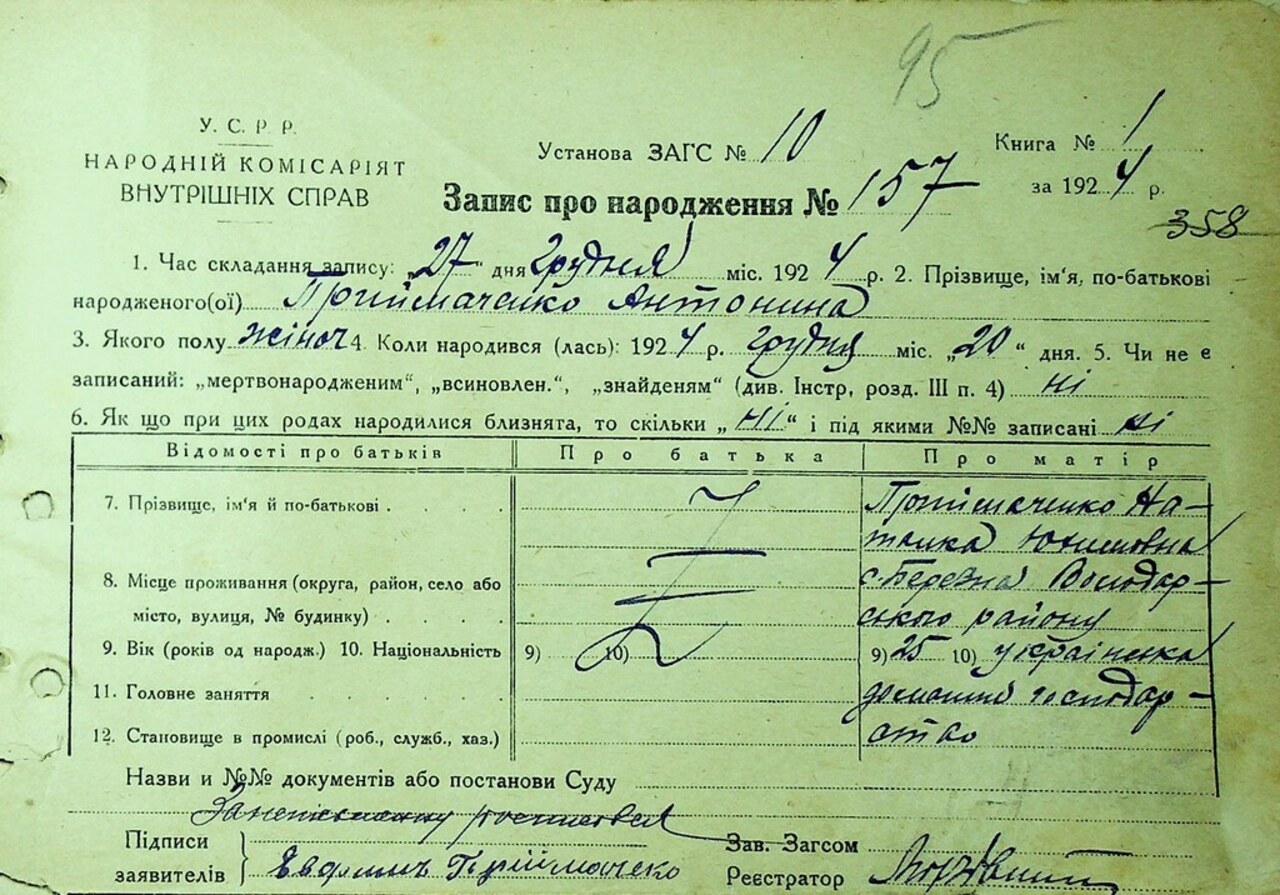 95
У. С. Р. Р.
НАРОДНІЙ КОМІСАРІЯТ
ВНУТРІШНІХ СПРАВ
Установа ЗАГС № 10
Книга № 1
Запис про народження № 157
за 1924 р.
358
1. Час складання запису: „27“ дня Грудня міс. 1924 р. 2. Прізвище, ім'я, по-батькові
народженого(ої) Приймаченко Антонина
3. Якого полу жіноч 4. Коли народився (лась): 1924 р. грудня міс. „20“ дня. 5. Чи не є
записаний: „мертвонародженим“, „всиновлен.“, „знайденям“ (див. Інстр, розд. III п. 4) ні
6. Як що при цих родах народилися близнята, то скільки „ні“ і під якими №№ записані ні
Відомості про батьків Про батька Про матір
7. Прізвище, ім'я й по-батькові Приймаченко На-
талка Юхимовна
8. Місце проживання (округа, район, село або с. Березна Володар-
місто, вулиця, № будинку) ського району
9. Вік (років од народж.) 10. Національність 9) 10) 9) 25 10) українка
11. Головне заняття домашнє господар-
12. Становище в промислі (роб., служб., хаз.) ство
Назви и №№ документів або постанови Суду
Підписи
заявителів Евдоким Приймаченко
Зав. Загсом
Реєстратор